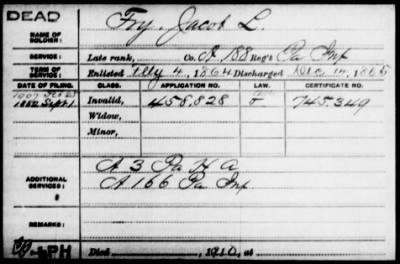 DEAD
NAME OF SOLDIER:
Fry, Jacob L.
SERVICE:
Late rank, Co. A, 188 Reg't Pa Inf
TERM OF SERVICE:
Enlisted July 4, 1864 Discharged Dec 14, 1865
DATE OF FILING. CLASS. APPLICATION NO. LAW. CERTIFICATE NO.
1907
1882 Sept 1 Invalid, 458,828 745.349
Widow,
Minor,
ADDITIONAL SERVICES:
A 3 Pa H A
A 166 Pa Inf
REMARKS:
PH
Died, 1910, at